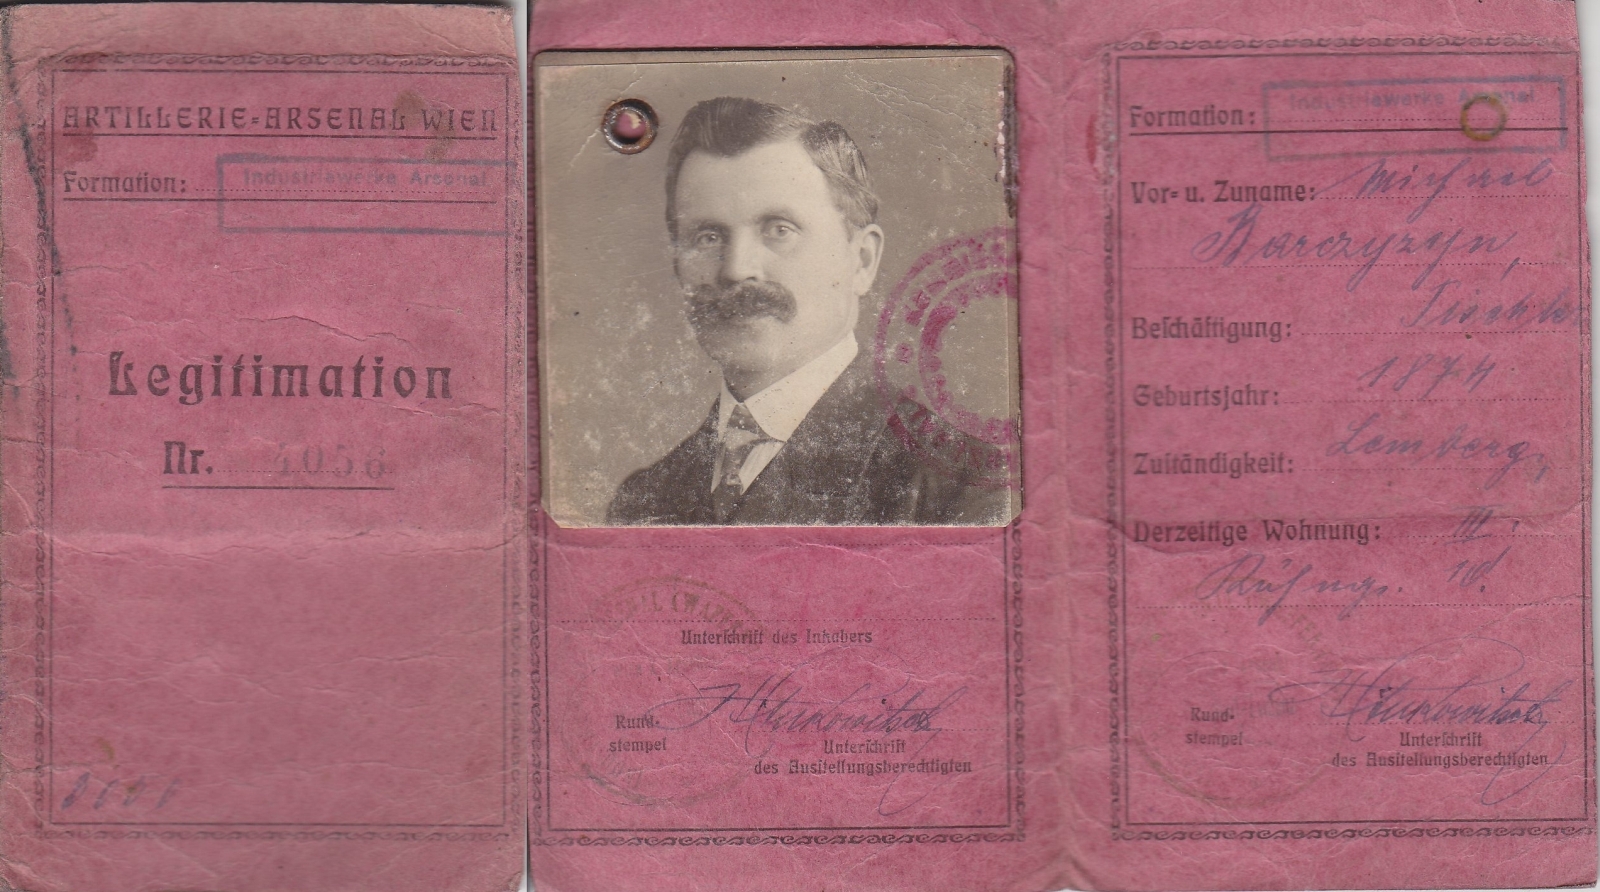 ARTILLERIE-ARSENAL WIEN
Formation: Industriewerke Arsenal
Legitimation
Nr. 4056
Unterschrift des Inhabers
Rund-
stempel
Unterschrift
des Ausstellungsberechtigten
Formation: Industriewerke Arsenal
Vor- u. Zuname: Michael
Barczyzyn,
Beschäftigung: Tischler
Geburtsjahr: 1874
Zuständigkeit: Lemberg,
Derzeitige Wohnung: III.
Rund-
stempel
Unterschrift
des Ausstellungsberechtigten